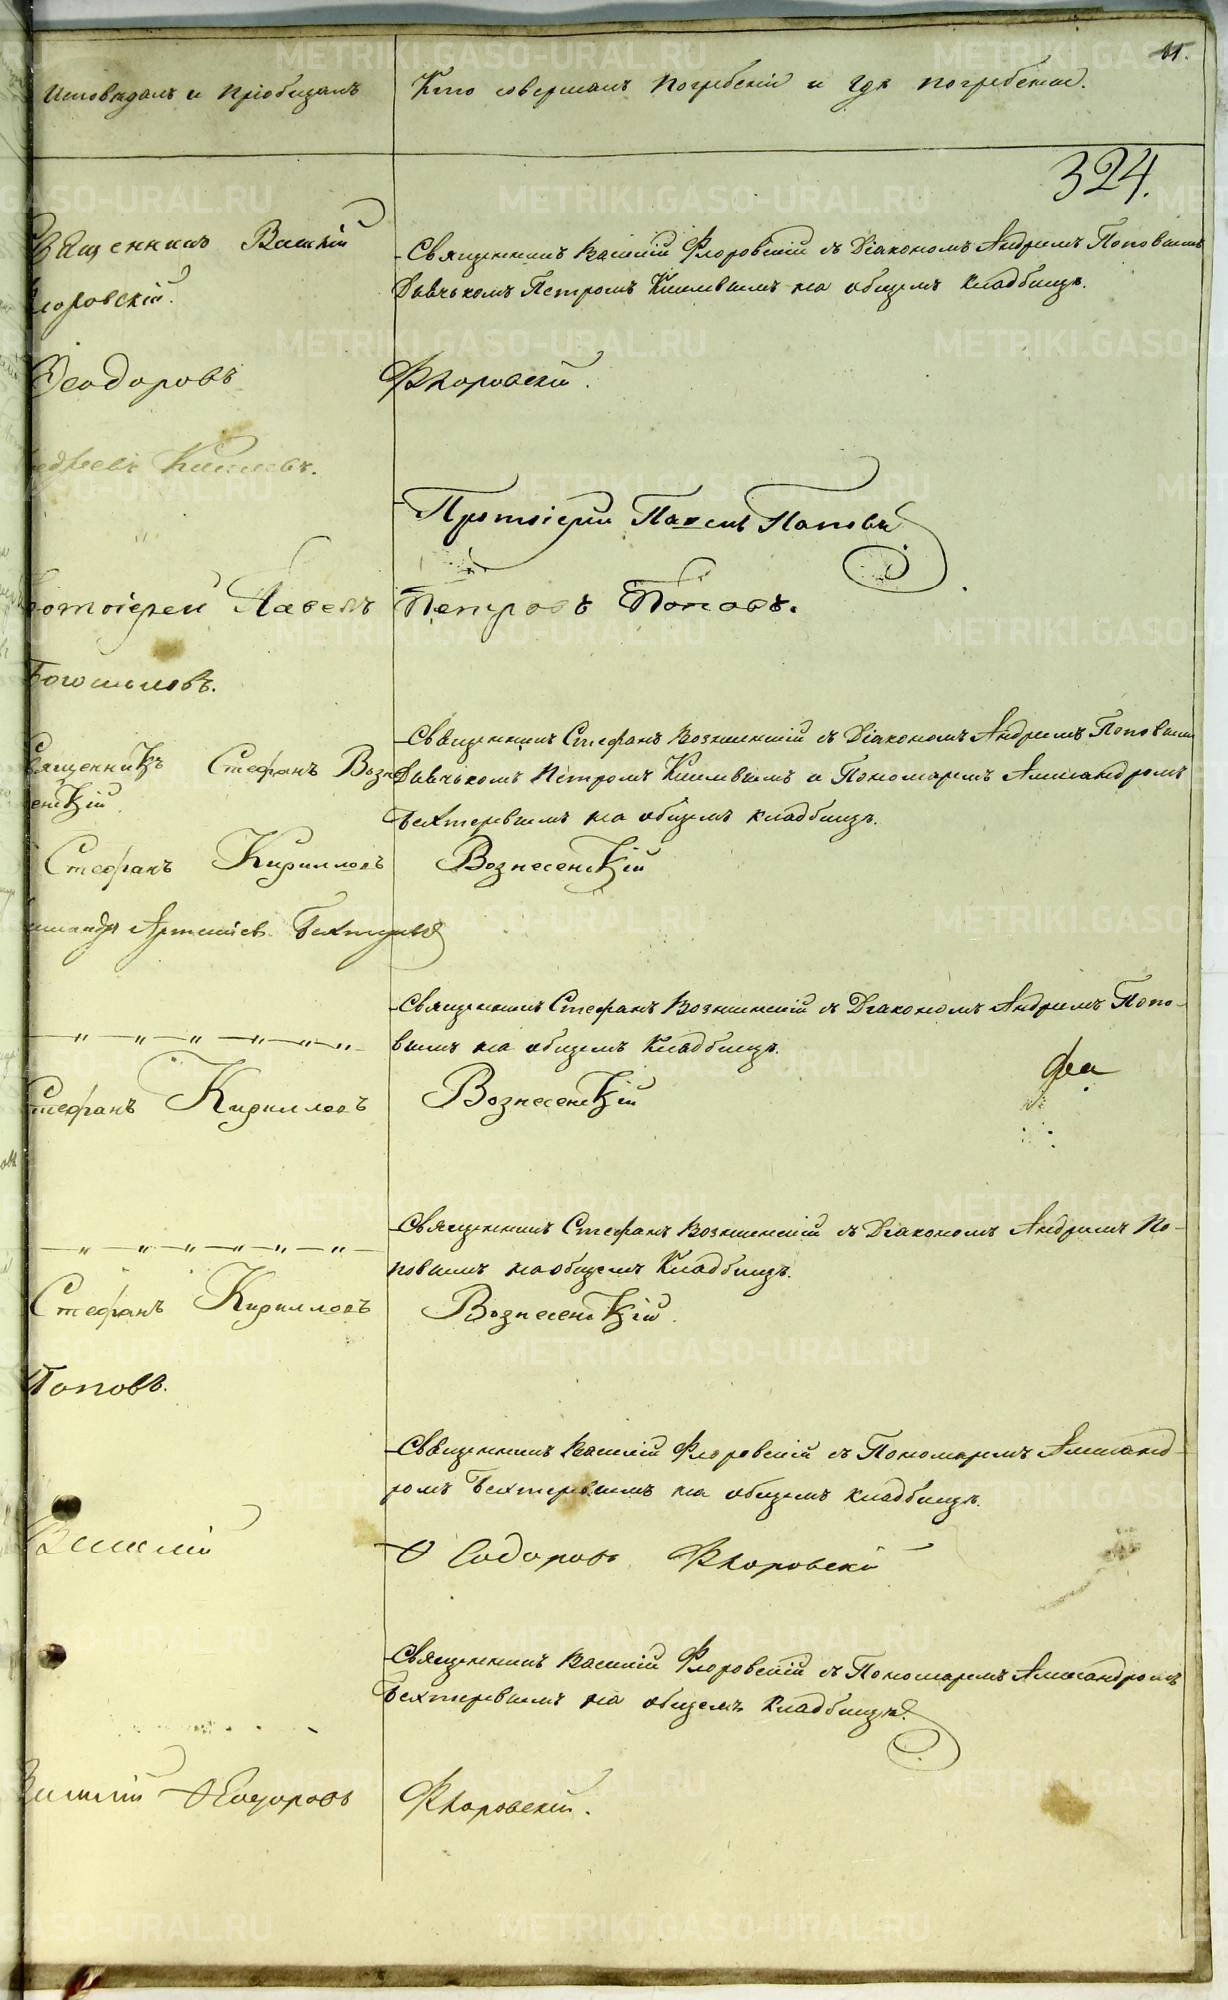 11.
Исповѣдалъ и Пріобщалъ
Кто совершалъ Погребеніи и гдѣ погребены.
324.
Священникъ Василій
Флоровскій.
Священникъ Василій Флоровскій съ Діакономъ Андреемъ Поповымъ
Дьячькомъ Петромъ на общемъ кладбищѣ.
Ѳеодоровъ
Флоровскій.
Протоіерей Павелъ Поповъ
Протоіерей Павелъ
Петровъ Поповъ.
Священникъ Стефанъ Вознесенскій съ Діакономъ Андреемъ Поповымъ
Священникъ Стефанъ Возне
Дьячькомъ Петромъ и Пономаремъ Александромъ
сенскій
Бехтеревымъ на общемъ кладбищѣ.
Стефанъ Кирилловъ
Вознесенскій
Артемьевъ Бехтеревъ
Священникъ Стефанъ Вознесенскій съ Діакономъ Андреемъ Попо-
— „ — „ — „ — „ — „ — „
вымъ на общемъ Кладбищѣ.
Стефанъ Кирилловъ
Вознесенскій
Священникъ Стефанъ Вознесенскій съ Діакономъ Андреемъ По-
— „ — „ — „ — „ — „ — „ —
повымъ на общемъ Кладбищѣ.
Стефанъ Кирилловъ
Вознесенскій.
Поповъ.
Священникъ Василій Флоровскій съ Пономаремъ Александ-
ромъ Бехтеревымъ на общемъ кладбищѣ.
Василій
Ѳеодоровъ Флоровскій
Священникъ Василій Флоровскій съ Пономаремъ Александромъ
Бехтеревымъ на общемъ Кладбищѣ.
Василій Ѳеодоровъ
Флоровскій.
METRIKI.GASO-URAL.RU